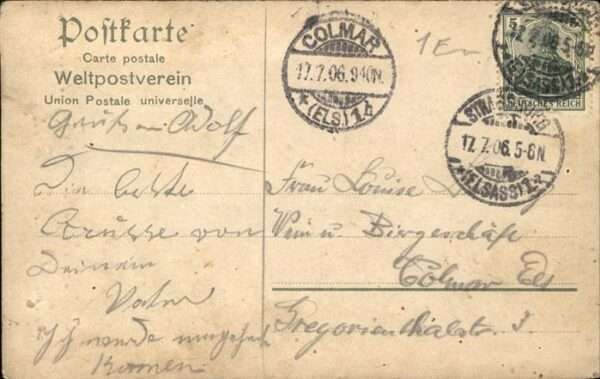 Postkarte
Carte postale
Weltpostverein
Union Postale universelle
Gruß an Adolf
Die beste
Grüsse von
Deinem
Vater
Ich werde
Kommen
COLMAR
17.7.06. 9-10N.
*(ELS) 1 b
1 E
5
DEUTSCHES REICH
17.7.06.5-6N.
(ELSASS) 1
STRASSBURG
17.7.06.5-6N.
*(ELSASS) 1
Frau Louise
Wein u. Biergeschäft
Colmar Els
Gregorienthalstr.